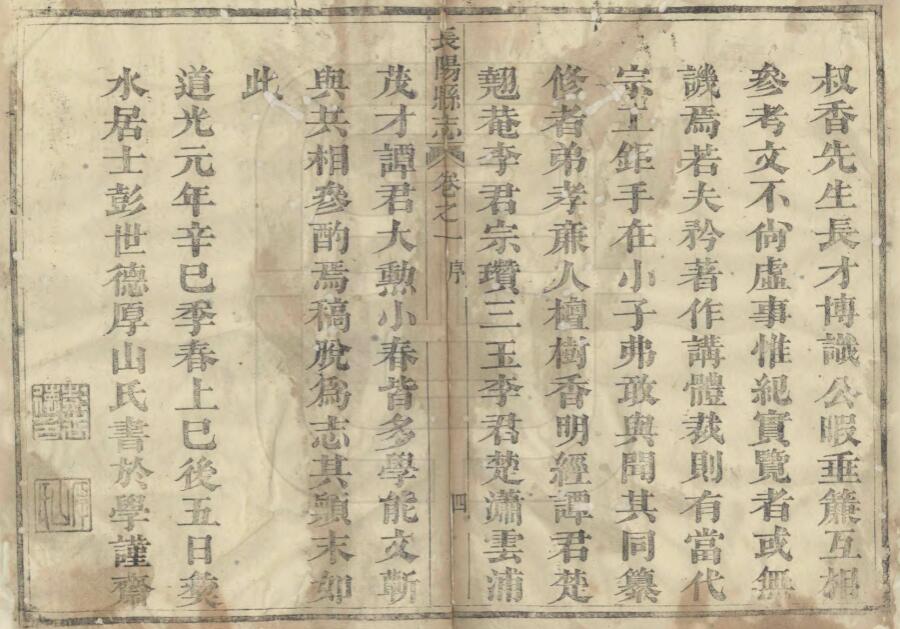 叔香先生長才博識公暇垂簾互相
參考文不尙虛事惟紀實覽者或無
譏焉若夫矜著作講體裁則有當代
宗工鉅手在小子弗敢與聞其同纂
修者弟孝廉人檀樹香明經譚君楚
翹菴李君宗瓚三玉李君楚瀟雲浦
長陽縣志 卷之一 序 四
茂才譚君大勲小春皆多學能文斬
與共相參酌焉稿脫爲志其顚末如
此
道光元年辛巳季春上巳後五日蘷
水居士彭世德厚山氏書於學謹齋